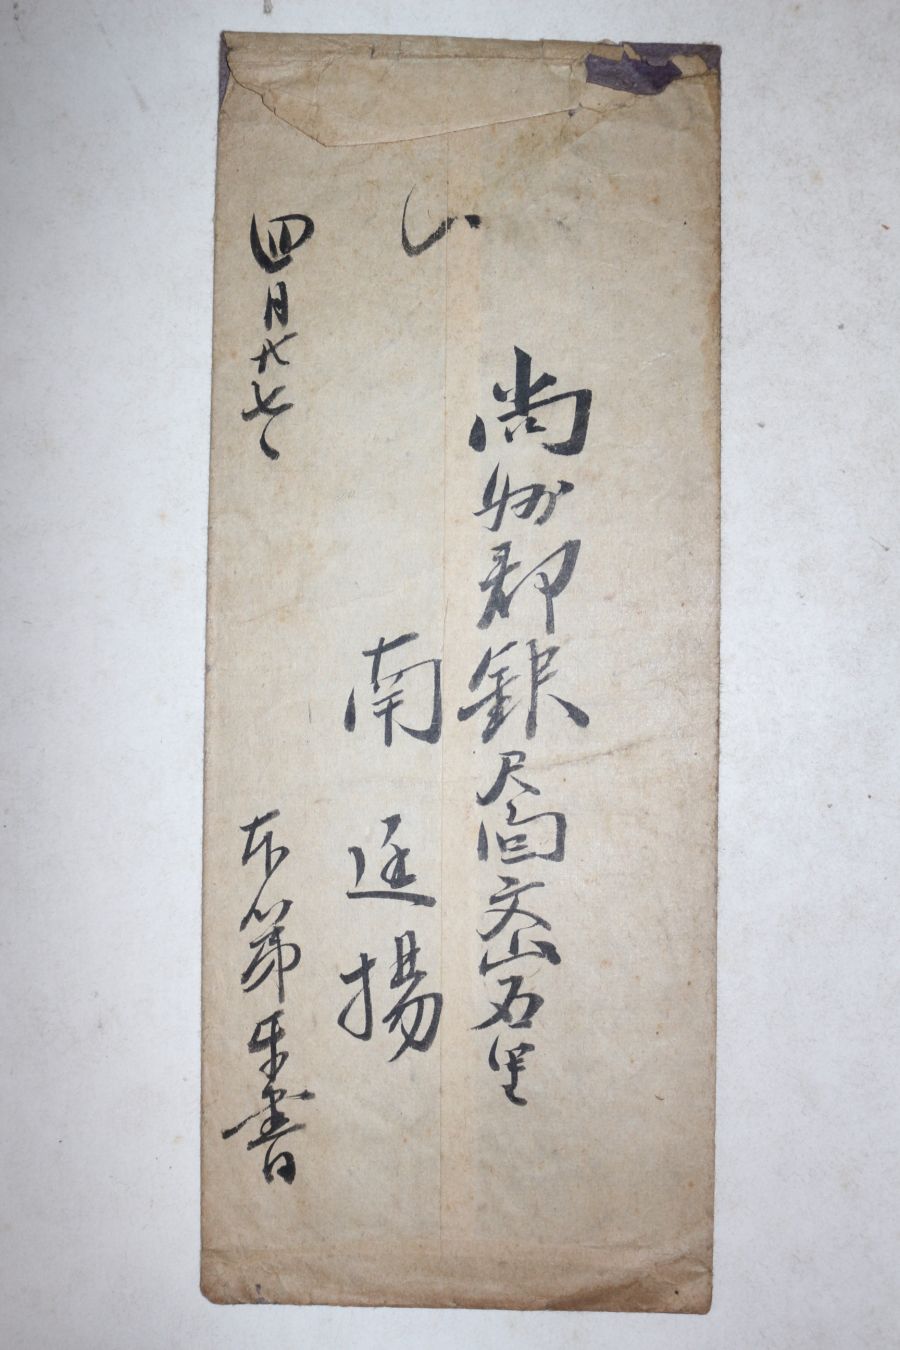 尚州郡銀尺面文山石里
南廷揚
四月廿七
弟生書